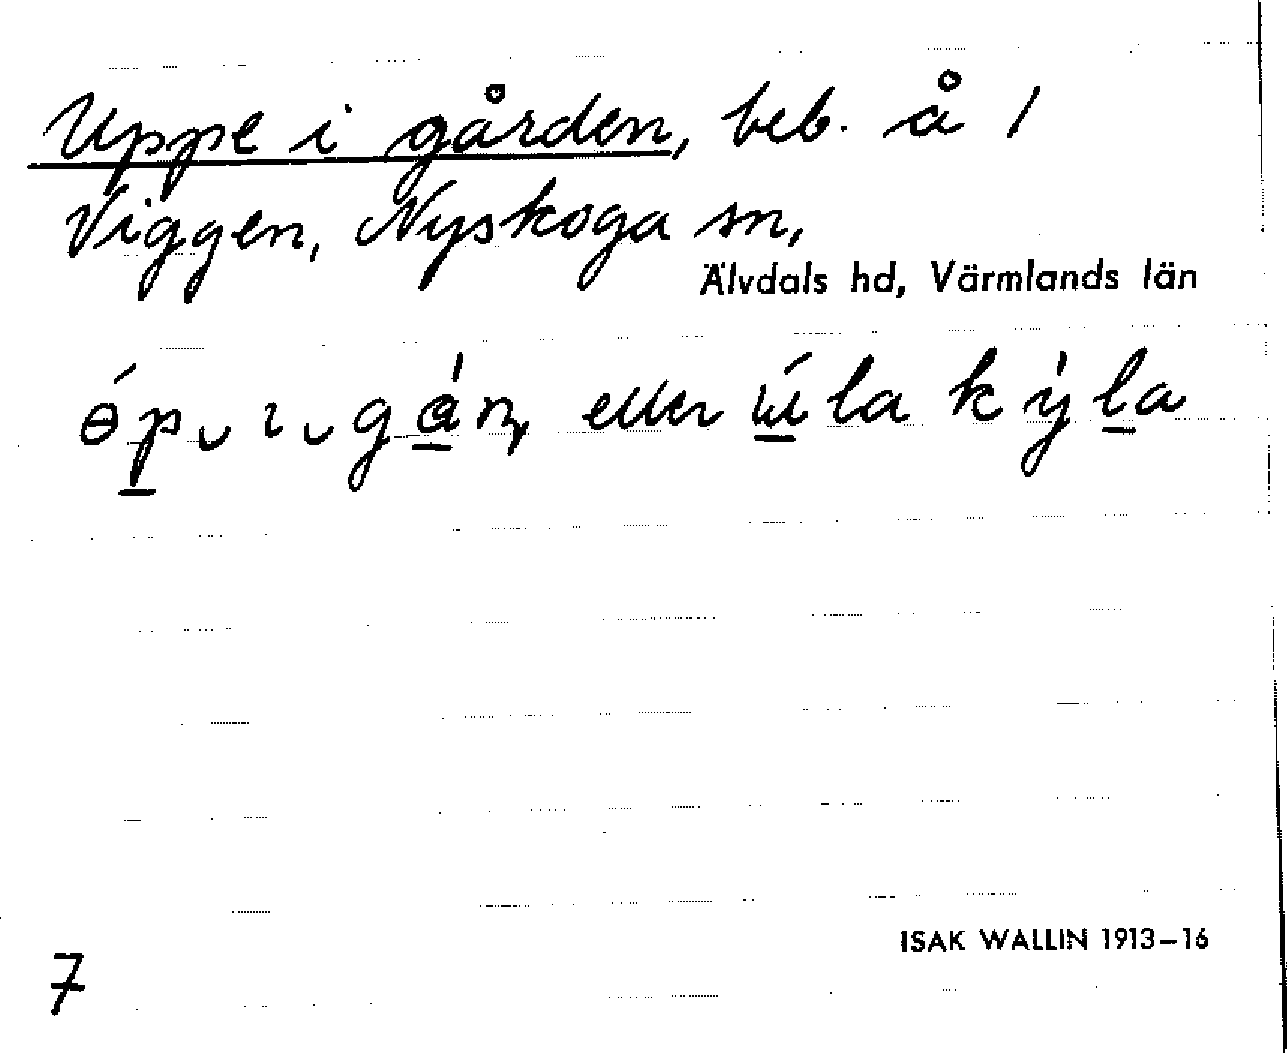 Uppe i gården, beb. å 1
Viggen, Nyskoga sn,
Älvdals hd, Värmlands län
eller
ISAK WALLIN 1913–16
7